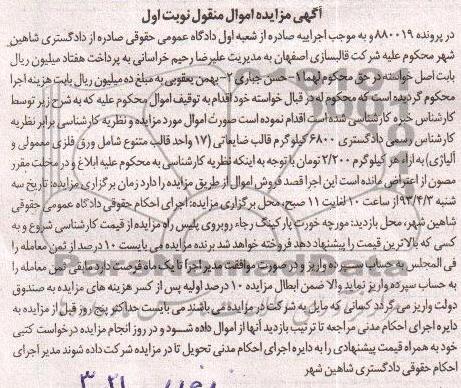 آگهی مزایده اموال منقول نوبت اول
در پرونده ۸۸۰۰۱۹ و به موجب اجراییه صادره از شعبه اول دادگاه عمومی حقوقی صادره از دادگستری شاهین
شهر محکوم علیه شرکت قالبسازی اصفهان به مدیریت علیرضا رحیم خراسانی به پرداخت هفتاد میلیون ریال
بابت اصل خواسته در حق محکوم لهما ۱- حسن جباری ۲- بهمن یعقوبی به مبلغ ده میلیون ریال بابت هزینه اجرا
محکوم گردیده است که محکوم له در قبال خواسته خود اقدام به توقیف اموال محکوم علیه که به شرح زیر توسط
کارشناس خبره کارشناسی شده است اقدام نموده است صورت اموال مورد مزایده و نظریه کارشناسی برابر نظریه
کارشناس رسمی دادگستری ۶۸۰۰ کیلوگرم قالب ضایعاتی (۱۷ واحد قالب متنوع شامل ورق فلزی معمولی و
آلیاژی) به ازاء هر کیلوگرم ۲/۲۰۰ تومان با توجه به اینکه نظریه کارشناسی به محکوم علیه ابلاغ و در مهلت مقرر
مصون از اعتراض مانده است این اجرا قصد فروش اموال از طریق مزایده را دارد زمان برگزاری مزایده: تاریخ سه
شنبه ۹۳/۴/۳ از ساعت ۱۰ لغایت ۱۱ صبح، محل برگزاری مزایده: اجرای احکام حقوقی دادگاه عمومی حقوقی
شاهین شهر، محل بازدید: مورچه خورت پارکینگ رجاء روبروی پلیس راه مزایده از قیمت کارشناسی شروع و به
کسی که بالاترین قیمت را پیشنهاد دهد فروخته خواهد شد برنده مزایده می بایست ۱۰ درصد از ثمن معامله را
فی المجلس به حساب سپرده واریز و در صورت موافقت مدیر اجرا تا یک ماه فرصت دارد مابقی ثمن معامله را
به حساب سپرده واریز نماید والا ضمن ابطال مزایده ۱۰ درصد اولیه پس از کسر هزینه های مزایده به صندوق
دولت واریز می گردد کسانی که مایل به شرکت در مزایده می باشند می بایست حداکثر پنج روز قبل از مزایده به
دایره اجرای احکام مدنی مراجعه تا ترتیب بازدید آنها از اموال داده شود و در روز انجام مزایده درخواست کتبی
خود به همراه قیمت پیشنهادی را به دایره اجرای احکام مدنی تحویل تا در مزایده شرکت داده شوند مدیر اجرای
احکام حقوقی دادگستری شاهین شهر
ParsNamadData